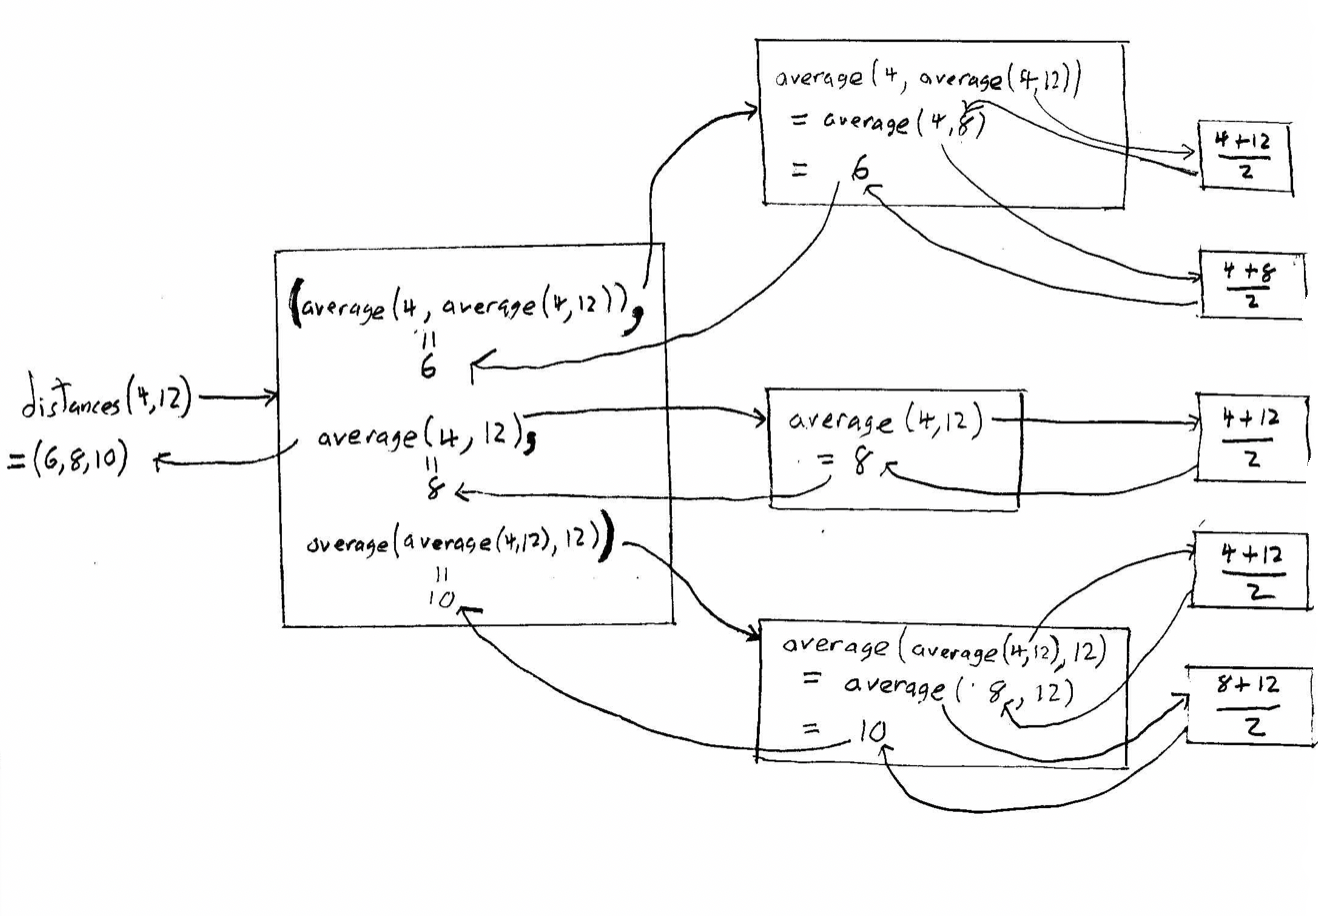 distances(4,12)
=(6,8,10)
(average(4, average(4,12)),
||
6
average(4, 12),
||
8
average(average(4,12), 12))
||
10
average(4, average(4,12))
= average(4,8)
= 6
4+12
2
4+8
2
average(4,12)
= 8
4+12
2
average(average(4,12), 12)
= average( 8, 12)
= 10
4+12
2
8+12
2